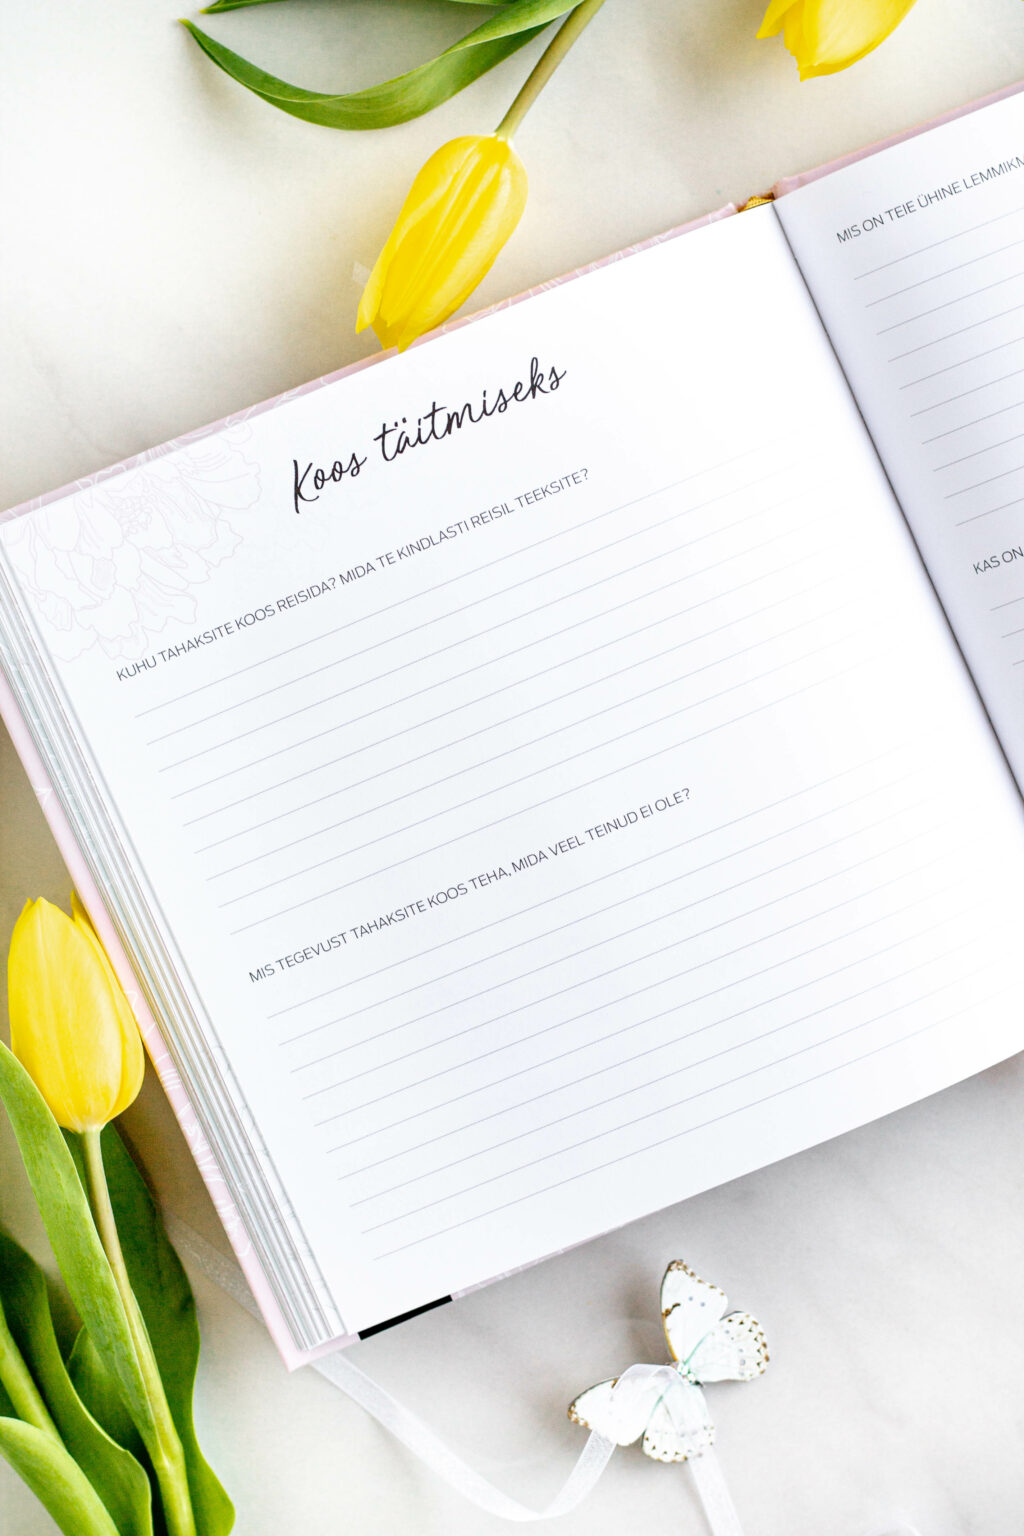 Koos täitmiseks
KUHU TAHAKSITE KOOS REISIDA? MIDA TE KINDLASTI REISIL TEEKSITE?
MIS TEGEVUST TAHAKSITE KOOS TEHA, MIDA VEEL TEINUD EI OLE?
MIS ON TEIE ÜHINE
KAS ON